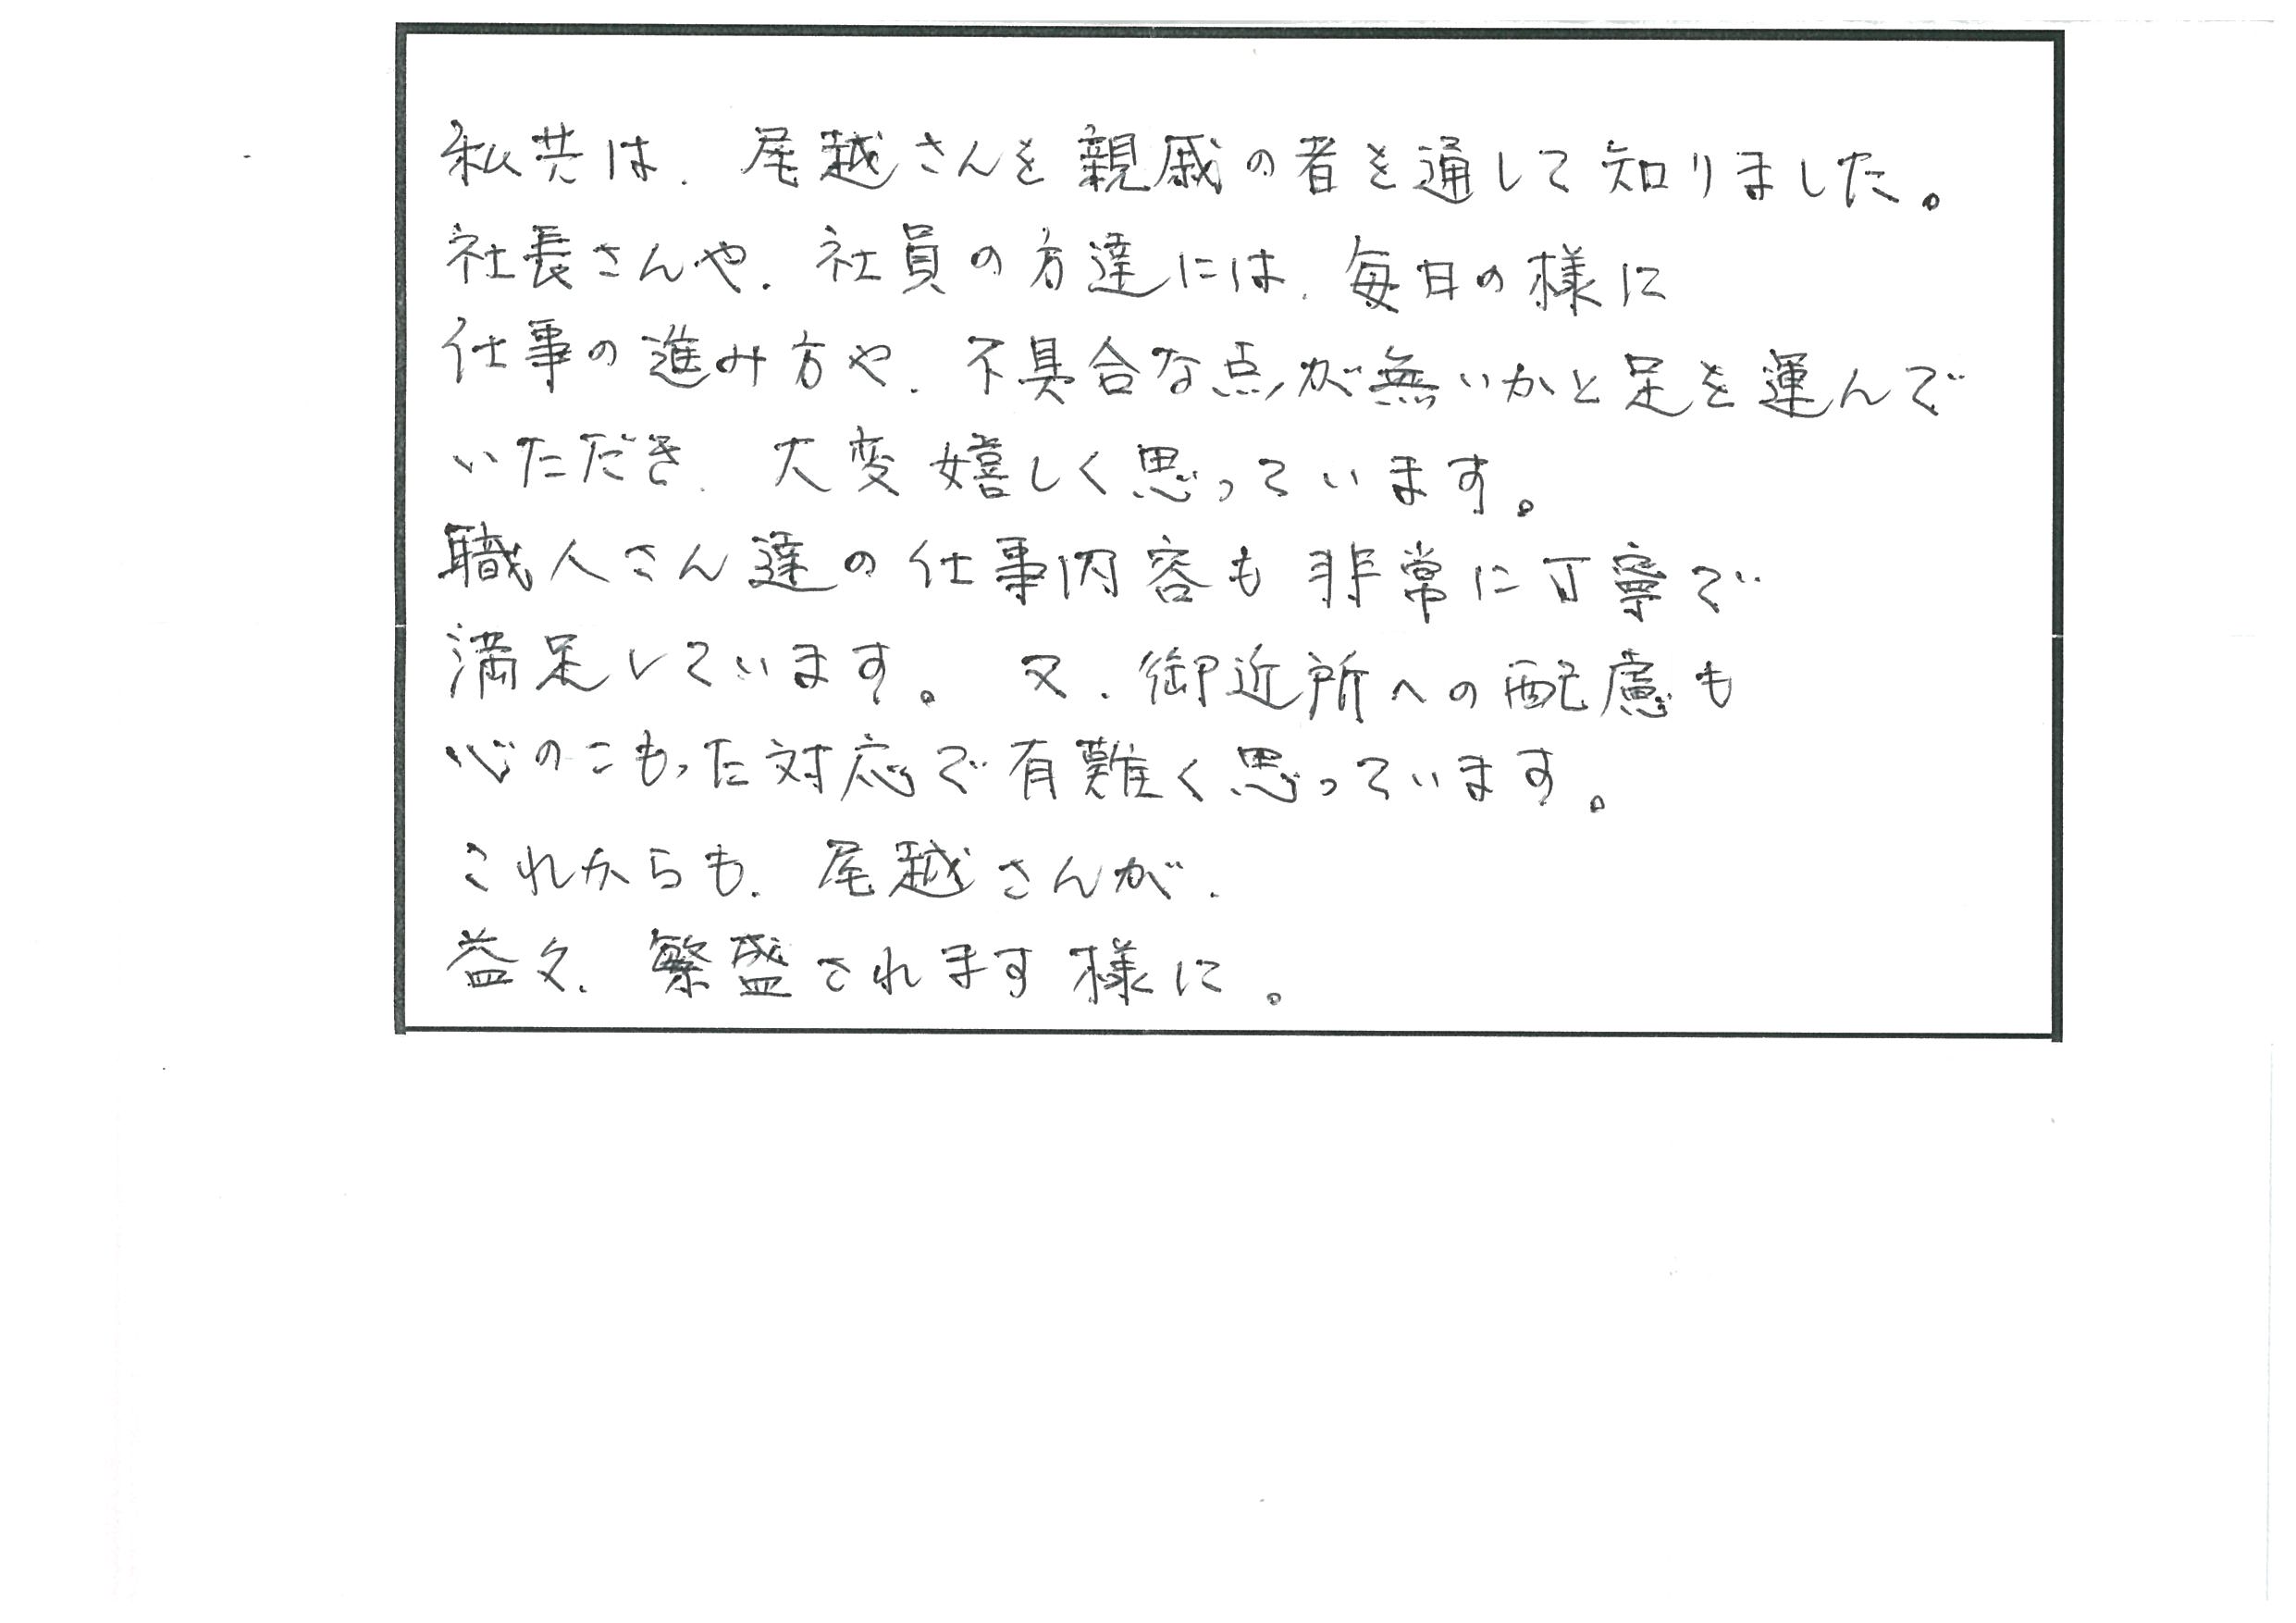 私共は、尾越さんを親戚の者を通して知りました。
社長さんや、社員の方達には、毎日の様に
仕事の進み方や、不具合な点が無いかと足を運んで
いただき、大変嬉しく思っています。
職人さん達の仕事内容も非常に丁寧で
満足しています。又、御近所への配慮も
心のこもった対応で有難く思っています。
これからも、尾越さんが、
益々、繁盛されます様に。